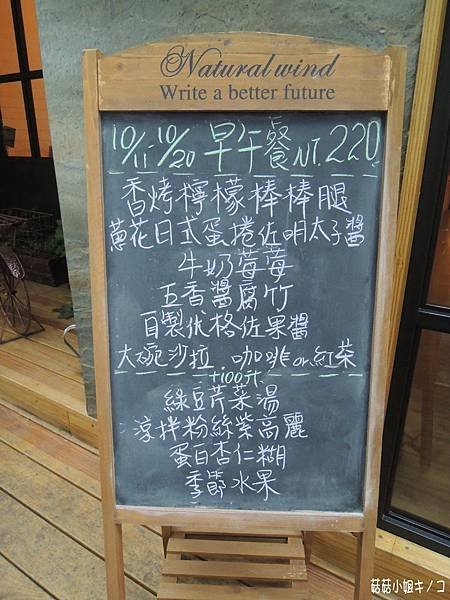 Natural wind
Write a better future
10/11-10/20 早午餐 NT.220
香烤檸檬棒棒腿
蔥花日式蛋捲佐明太子醬
牛奶莓莓
五香醬腐竹
自製优格佐果醬
大碗沙拉 咖啡or紅茶
+100元
綠豆芹菜湯
涼拌粉絲紫高麗
蛋白杏仁糊
季節水果
菇菇小姐キノコ